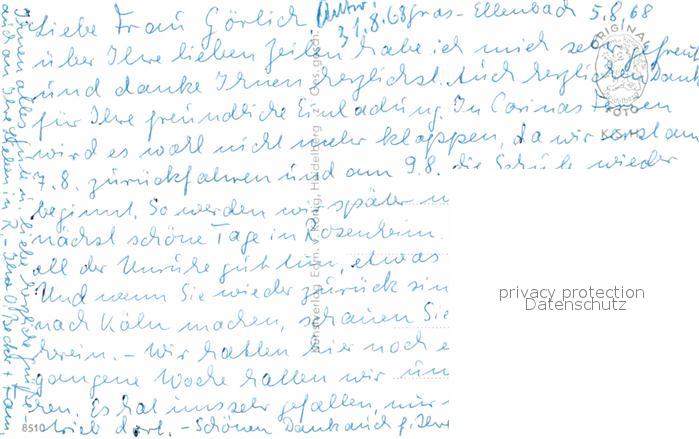 Liebe Frau Görlich, Antw. 31.8.68 Gras-Ellenbach 5.8.68
über Ihre lieben Zeilen habe ich mich sehr gefreut
und danke Ihnen herzlichst. Auch herzlichen Dank
für Ihre freundliche Einladung. In Corinas Ferien
wird es wohl nicht mehr klappen, da wir erst am
7.8. zurückfahren und am 9.8. die Schule wieder
beginnt. So werden wir später
nächst schöne Tage in Rosenheim
all der Unruhe gut tun, etwas
Und wenn Sie wieder zurück sin
nach Köln machen, schauen Sie
herein. - Wir hatten hier noch e
gangene Woche hatten wir un
ren. Es hat uns sehr gefallen, nur
trieb dort. - Schönen Dank auch f. Ihre
Ihnen alles Gute u. liebe herzliche Grüße
auch an Ihre Lieben in R. - Ihre O. Becker + Fam.
ORIGINAL
FOTO
KÖNIG
Kunstverlag Edm. v. König, Heidelberg
Ges. gesch.
8510
privacy protection
Datenschutz